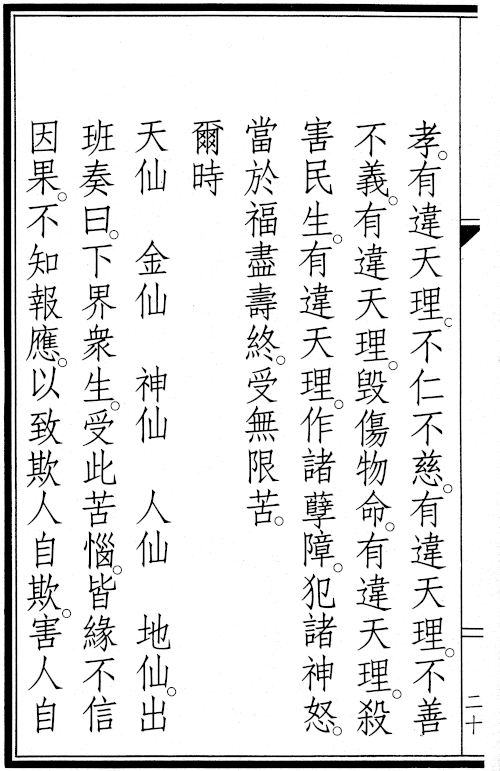 孝。有違天理。不仁不慈。有違天理。不善
不義。有違天理。毀傷物命。有違天理。殺
害民生。有違天理。作諸孽障。犯諸神怒。
當於福盡壽終。受無限苦。
爾時
天仙　金仙　神仙　人仙　地仙。出
班奏曰。下界衆生。受此苦惱。皆緣不信
因果。不知報應。以致欺人自欺。害人自
二十